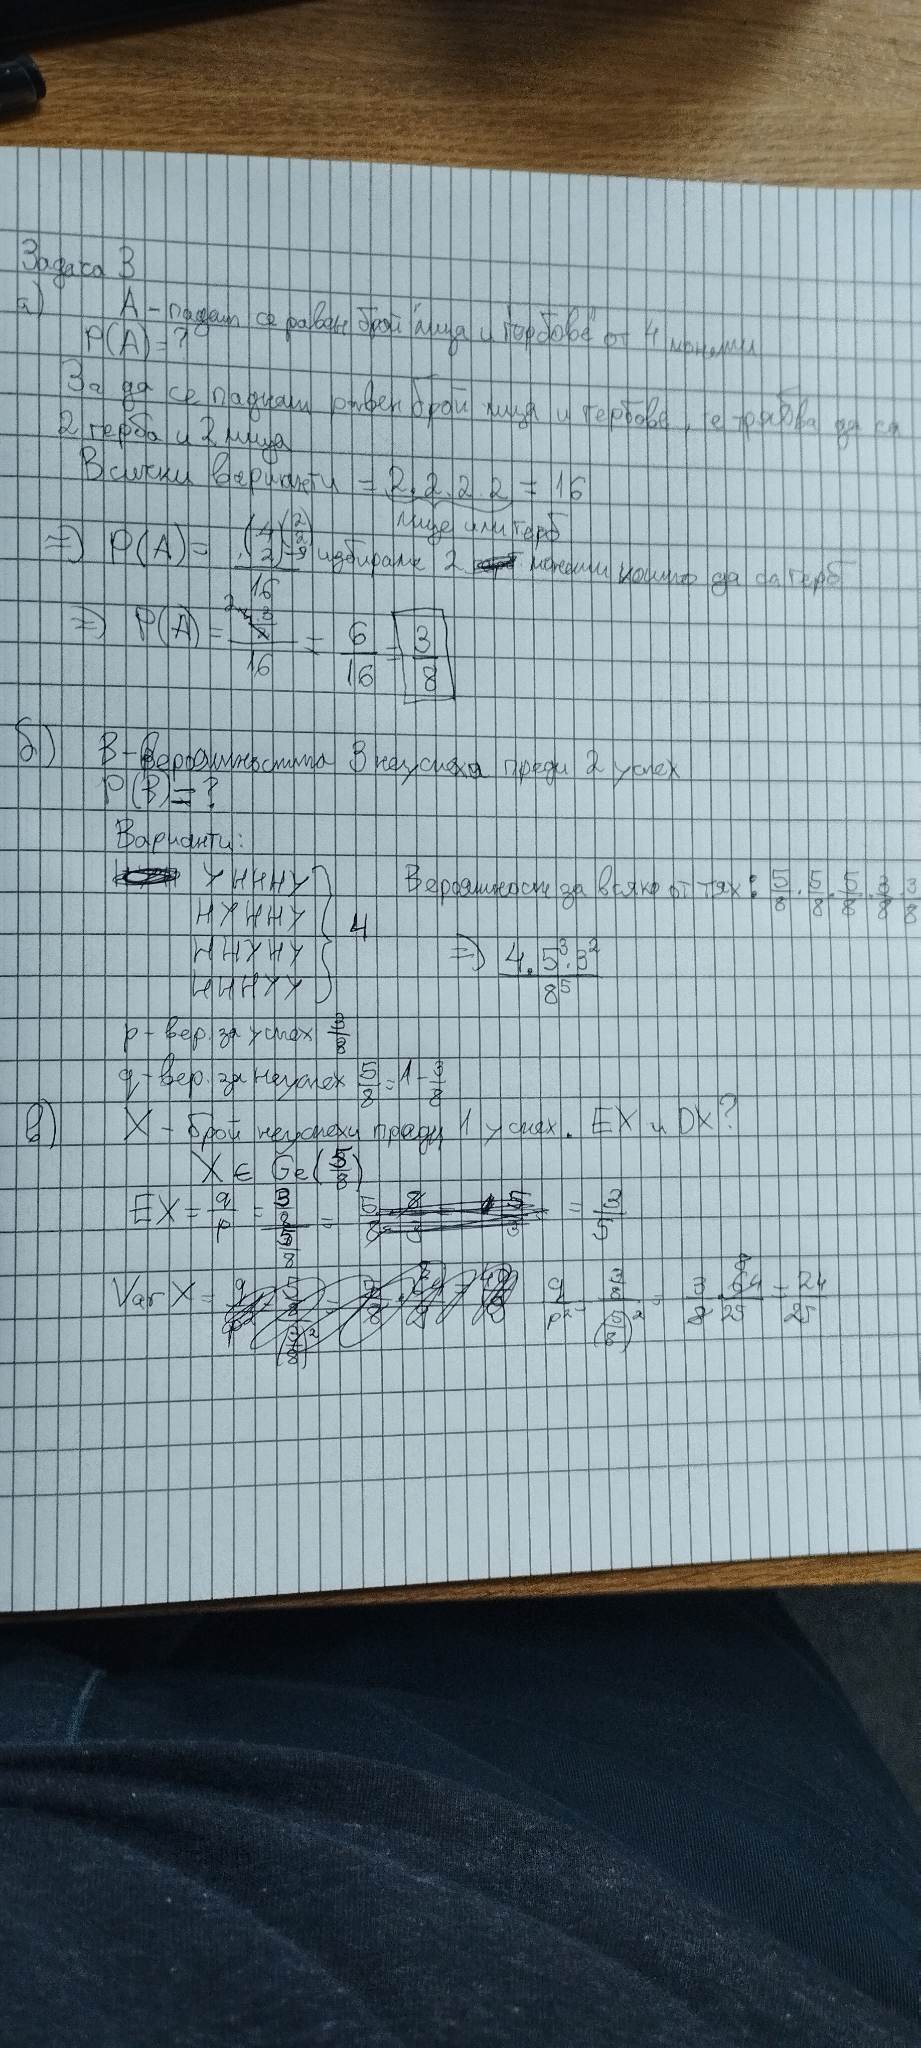 Задача 3
а) A - падат се равен брой "лица и гербове" от 4 монети
P(A) = ?
За да се паднат равен брой лица и гербове, те трябва да са
2 герба и 2 лица
Всички варианти = 2.2.2.2 = 16
лице или герб
=> P(A) = (4 2)(2 2) / 16 избираме 2 монети които да са герб
=> P(A) = / 16 = 6/16 = 3/8
б) B - Вероятността 3 неуспеха преди 2 успех
P(B) = ?
Варианти:
УНННУ Вероятност за всяко от тях: 5/8 . 5/8 . 5/8 . 3/8 . 3/8
НУННУ 4
ННУНУ => 4.5³.3² / 8⁵
НННУУ
p - вер. за успех 3/8
q - вер. за неуспех 5/8 = 1 - 3/8
в) X - брой неуспехи преди 1 успех. EX и DX?
X ∈ Ge(5/8)
EX = q/p = 3/8 / 5/8 = = 3/5
Var X = q/p² = 3/8 / (5/8)² = 3/8 . 64/25 = 24/25